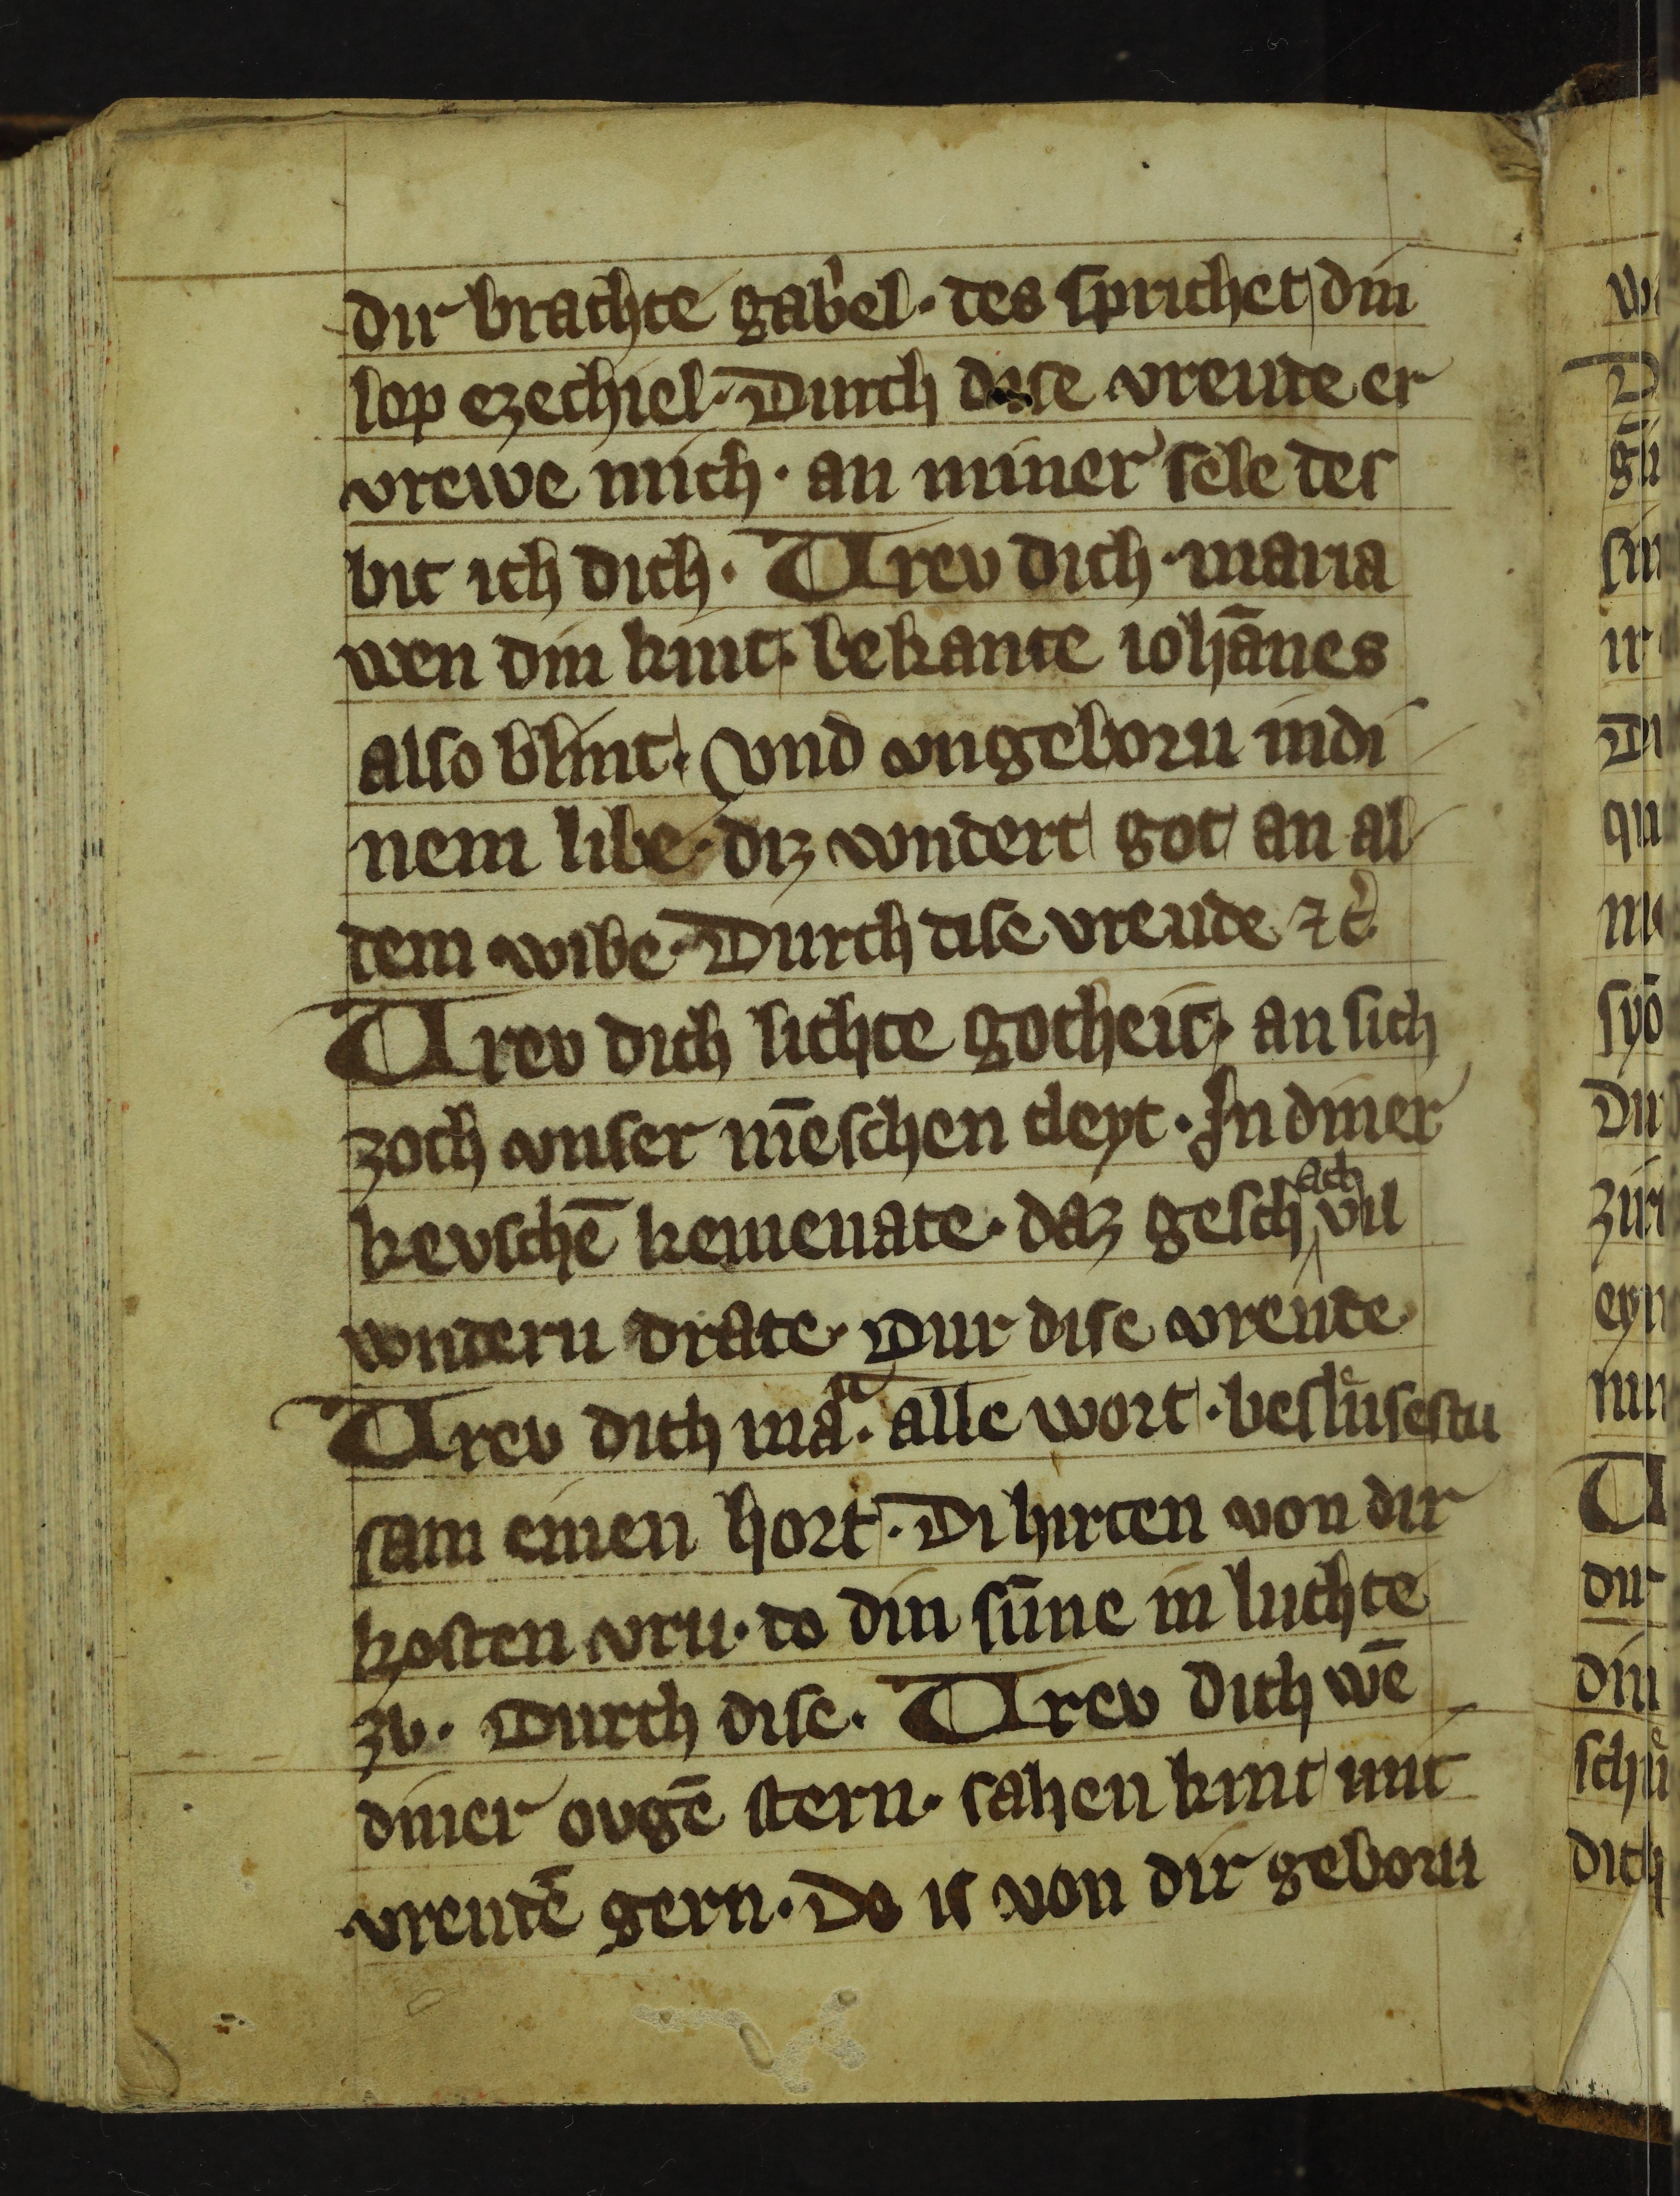 dir brachte gab͛el · des sprichet din
lop ezechiel · Durch dise vreude er
vrewe mich · an miner sele des
bit ich dich · Vrev dich · maria
wen din kint · bekante iohānes
also blint · vnd vngeborn in di
nem libe · diz wndert got an al
dem wibe · Durch dise vreude ⁊c͛
Vrev dich lichte gotheit · an sich
zoch vnser mēschen cleyt · In diner
kevschē kemenate · daz geschach vil
wndern drate · Dur dise vreude
Vrev dich maᵃ · alle wort · beslusestu
sam einen hort · Di hirten von dir
kosten vru · do din sūne in luchte
zv · Durch dise · Vrev dich wē
diner ovgē stern · sahen kint mit
vreudē gern · Do is von dir geborn